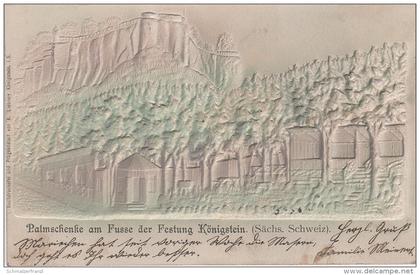 Palmschenke am Fusse der Festung Königstein. (Sächs. Schweiz).
Herzl. Gruß
Mariechen hat seit voriger Woche die Masern,
doch geht es ihr wieder besser.
Familie
© Schnabelhansel
delcampe.net